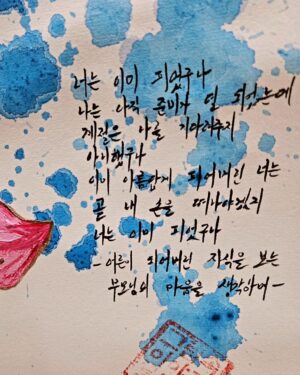 너는 이미 피었구나
나는 아직 준비가 덜 되었는데
계절은 나를 기다려주지
아니했구나
이미 아름답게 피어버린 너는
곧 내 손을 떠나야겠지
너는 이미 피었구나
- 어른이 되어버린 자식을 보는
부모님의 마음을 생각하며 -